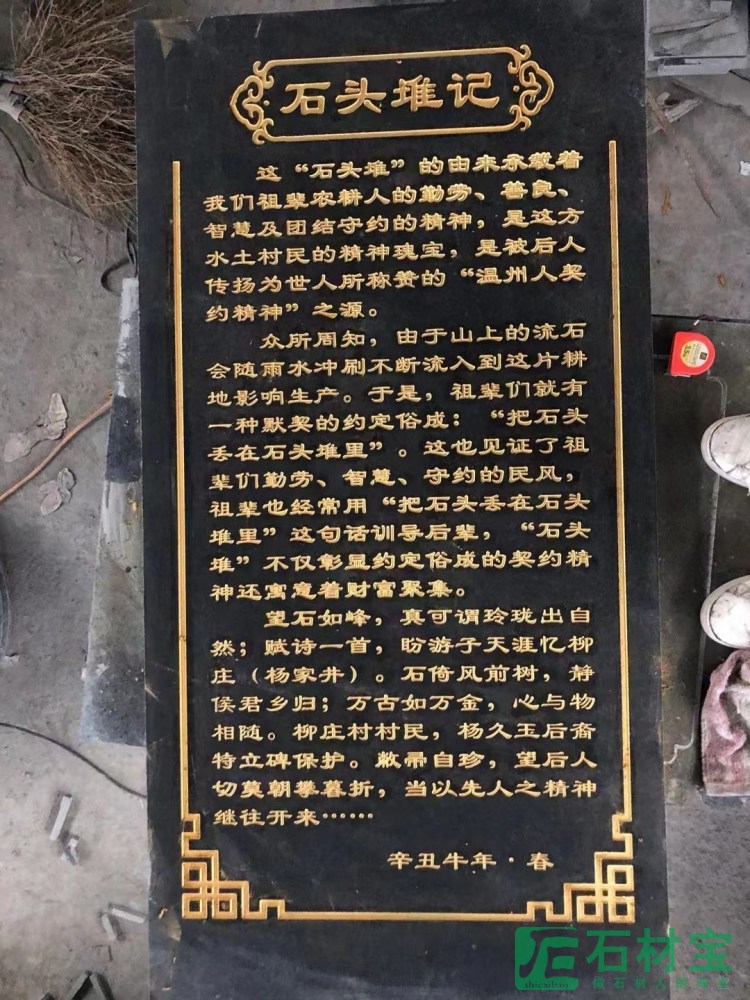 石头堆记
这“石头堆”的由来承载着
我们祖辈农耕人的勤劳、善良、
智慧及团结守约的精神，是这方
水土村民的精神瑰宝，是被后人
传扬为世人所称赞的“温州人契
约精神”之源。
众所周知，由于山上的流石
会随雨水冲刷不断流入到这片耕
地影响生产。于是，祖辈们就有
一种默契的约定俗成：“把石头
丢在石头堆里”。这也见证了祖
辈们勤劳、智慧、守约的民风，
祖辈也经常用“把石头丢在石头
堆里”这句话训导后辈，“石头
堆”不仅彰显约定俗成的契约精
神还寓意着财富聚集。
望石如峰，真可谓玲珑出自
然；赋诗一首，盼游子天涯忆柳
庄（杨家井）。石倚风前树，静
侯君乡归；万古如万金，心与物
相随。柳庄村村民，杨久玉后裔
特立碑保护。敝帚自珍，望后人
切莫朝攀暮折，当以先人之精神
继往开来……
辛丑牛年·春
石材宝
shicaibao